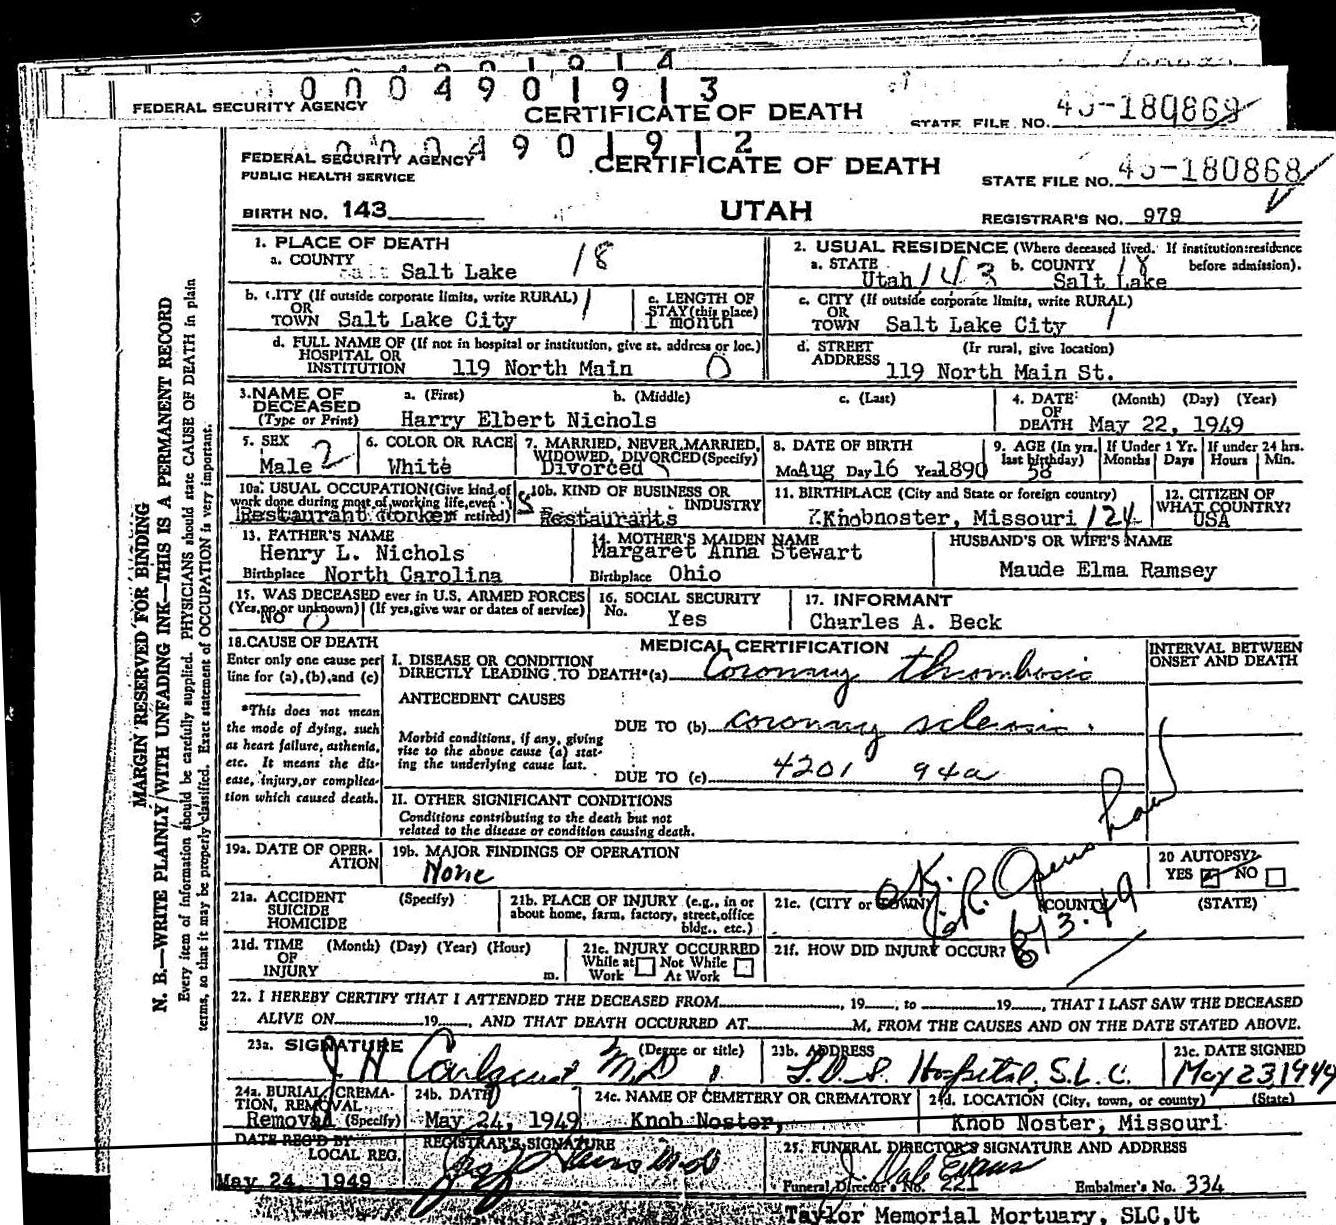 0004901914
0004901913
FEDERAL SECURITY AGENCY
CERTIFICATE OF DEATH
STATE FILE NO. 45-180869
0004901912
FEDERAL SECURITY AGENCY
PUBLIC HEALTH SERVICE
CERTIFICATE OF DEATH
STATE FILE NO. 45-180868
BIRTH NO. 143
UTAH
REGISTRAR'S NO. 979
MARGIN RESERVED FOR BINDING
N. B.—WRITE PLAINLY WITH UNFADING INK—THIS IS A PERMANENT RECORD
Every item of information should be carefully supplied. PHYSICIANS should state CAUSE OF DEATH in plain
terms, so that it may be properly classified. Exact statement of OCCUPATION is very important.
1. PLACE OF DEATH
a. COUNTY
Salt Lake 18
2. USUAL RESIDENCE (Where deceased lived. If institution: residence before admission).
a. STATE Utah 143 b. COUNTY 18 Salt Lake
b. CITY (If outside corporate limits, write RURAL)
OR TOWN Salt Lake City 1
c. LENGTH OF STAY (this place)
1 month
c. CITY (If outside corporate limits, write RURAL)
OR TOWN Salt Lake City 1
d. FULL NAME OF (If not in hospital or institution, give st. address or loc.)
HOSPITAL OR INSTITUTION 119 North Main 0
d. STREET ADDRESS (If rural, give location)
119 North Main St.
3. NAME OF DECEASED (Type or Print)
a. (First) b. (Middle) c. (Last)
Harry Elbert Nichols
4. DATE OF DEATH (Month) (Day) (Year)
May 22, 1949
5. SEX
Male 2
6. COLOR OR RACE
White
7. MARRIED, NEVER MARRIED, WIDOWED, DIVORCED (Specify)
Divorced
8. DATE OF BIRTH
Mo Aug Day 16 Year 1890
9. AGE (In yrs. last birthday)
58
If Under 1 Yr. Months Days
If under 24 hrs. Hours Min.
10a. USUAL OCCUPATION (Give kind of work done during most of working life, even if retired)
Restaurant Worker
10b. KIND OF BUSINESS OR INDUSTRY
Restaurants
11. BIRTHPLACE (City and State or foreign country)
Knobnoster, Missouri 124
12. CITIZEN OF WHAT COUNTRY?
USA
13. FATHER'S NAME
Henry L. Nichols
Birthplace North Carolina
14. MOTHER'S MAIDEN NAME
Margaret Anna Stewart
Birthplace Ohio
HUSBAND'S OR WIFE'S NAME
Maude Elma Ramsey
15. WAS DECEASED ever in U.S. ARMED FORCES
(Yes, no or unknown) (If yes, give war or dates of service)
No 0
16. SOCIAL SECURITY No.
Yes
17. INFORMANT
Charles A. Beck
18. CAUSE OF DEATH
Enter only one cause per line for (a), (b), and (c)
*This does not mean the mode of dying, such as heart failure, asthenia, etc. It means the disease, injury, or complication which caused death.
MEDICAL CERTIFICATION
INTERVAL BETWEEN ONSET AND DEATH
I. DISEASE OR CONDITION DIRECTLY LEADING TO DEATH*(a) Coronary thrombosis
ANTECEDENT CAUSES
Morbid conditions, if any, giving rise to the above cause (a) stating the underlying cause last.
DUE TO (b) coronary sclerosis.
DUE TO (c) 4201 94a
II. OTHER SIGNIFICANT CONDITIONS
Conditions contributing to the death but not related to the disease or condition causing death.
19a. DATE OF OPERATION
19b. MAJOR FINDINGS OF OPERATION
None
20 AUTOPSY?
YES NO
21a. ACCIDENT SUICIDE HOMICIDE (Specify)
21b. PLACE OF INJURY (e.g., in or about home, farm, factory, street, office bldg., etc.)
21c. (CITY or TOWN) (COUNTY) (STATE)
6-13-49
21d. TIME OF INJURY (Month) (Day) (Year) (Hour) m.
21e. INJURY OCCURRED
While at Work Not While At Work
21f. HOW DID INJURY OCCUR?
22. I HEREBY CERTIFY THAT I ATTENDED THE DECEASED FROM , 19 , to 19 , THAT I LAST SAW THE DECEASED
ALIVE ON 19 , AND THAT DEATH OCCURRED AT M, FROM THE CAUSES AND ON THE DATE STATED ABOVE.
23a. SIGNATURE (Degree or title)
J H Carlquist M.D.
23b. ADDRESS
L.D.S. Hospital, S.L.C.
23c. DATE SIGNED
May 23 1949
24a. BURIAL, CREMATION, REMOVAL (Specify)
Removal
24b. DATE
May 24, 1949
24c. NAME OF CEMETERY OR CREMATORY
Knob Noster,
24d. LOCATION (City, town, or county) (State)
Knob Noster, Missouri
DATE REC'D BY LOCAL REG.
May 24, 1949
REGISTRAR'S SIGNATURE
25. FUNERAL DIRECTOR'S SIGNATURE AND ADDRESS
J. Dale Evans
Funeral Director's No. 221 Embalmer's No. 334
Taylor Memorial Mortuary, SLC, Ut